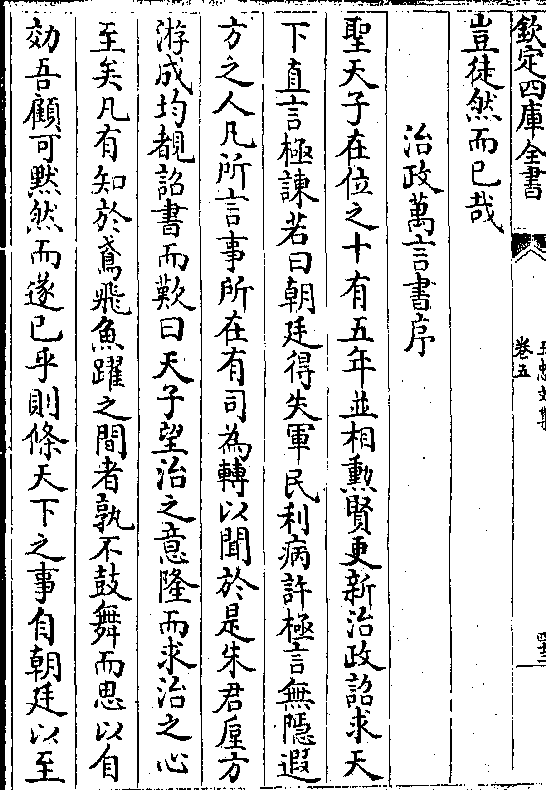 欽定四庫全書
王忠文集
卷五
豈徒然而已哉
治政萬言書序
聖天子在位之十有五年並相勲賢更新治政詔求天
下直言極諫若曰朝廷得失軍民利病許極言無隱遐
方之人凡所言事所在有司為轉以聞於是朱君㕓方
游成均覩詔書而歎曰天子望治之意隆而求治之心
至矣凡有知於鳶飛魚躍之間者孰不鼓舞而思以自
効吾顧可黙然而遂已乎則條天下之事自朝廷以至